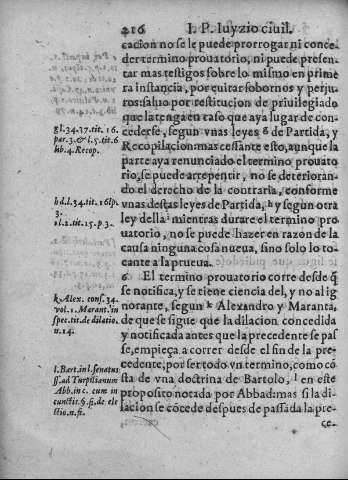 216 I. P. Iuyzio ciuil.
cacion no se le puede prorrogar ni conce-
der termino prouatorio, ni puede presen-
tar mas testigos sobre lo mismo en prime
ra instancia, por euitar sobornos y perju-
ros: saluo por restitucion de priuilegiado
que la tenga en caso que aya lugar de con-
cederse, segun vnas leyes g de Partida, y
Recopilacion mas cessante esto, aunque la
parte aya renunciado el termino prouato
rio, se puede arrepentir, no se deterioran-
do el derecho de la contraria, conforme
vnas destas leyes de Partida, h y segun otra
ley della i mientras durare el termino pro
uatorio, no se puede hazer en razon de la
causa ninguna cosa nueua, sino solo lo to-
cante a la prueua.
6 El termino prouatorio corre desde q̃
se notifica, y se tiene ciencia del, y no al ig
norante, segun k Alexandro y Maranta,
de que se sigue que la dilacion concedida
y notificada antes que la precedente se pas
se, empieça a correr desde el fin de la pre-
cedente, por ser todo vn termino, como cõ
sta de vna doctrina de Bartolo, l en este
proposito notada por Abbad: mas si la di-
lacion se cõcede despues de passada la pre-
ce-
gl. 34. 37. tit. 16.
par. 3. & l. 5. tit. 6
lib. 4. Recop.
hd. l. 34. tit. 16 lp.
3.
i l. 2. tit. 15. p. 3.
k Alex. cons. 34.
vol. 1. Marant. in
spec. tit. de dilatio.
n. 14.
l. Bart. in l. senatus
ff. ad Turpilianum
Abb. in c. cum in
cunctis. §. fi. de ele
ctio. n. fi.